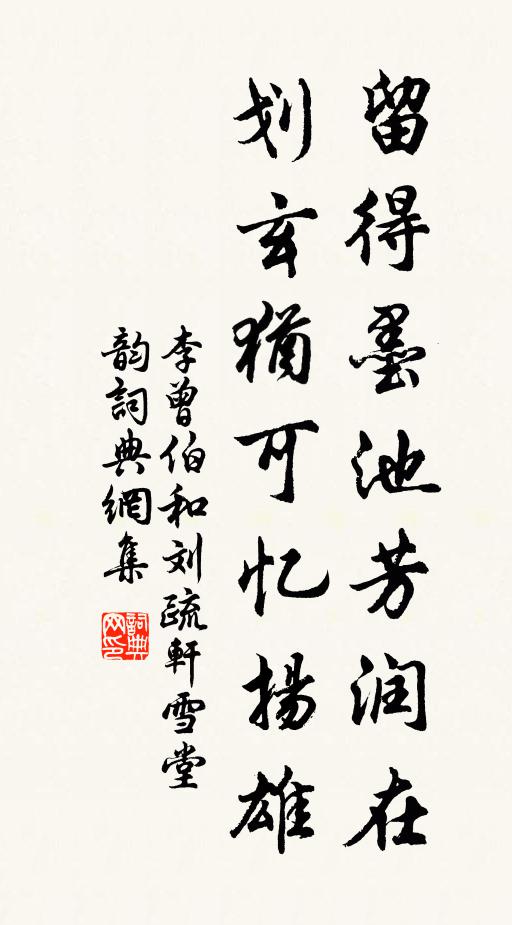 留得墨池芳润在
划玄犹可忆扬雄
李曾伯和刘疏軒雪堂
韵詞典網集
詞典网印